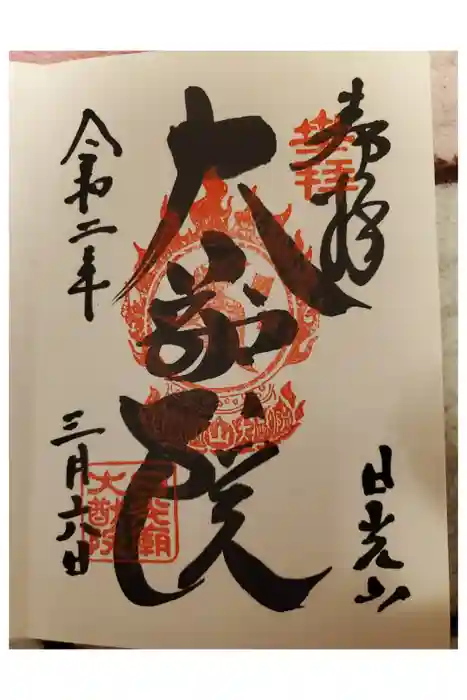 奉拝
日光山
大猷院
令和二年
三月六日
奉拝
大猷院